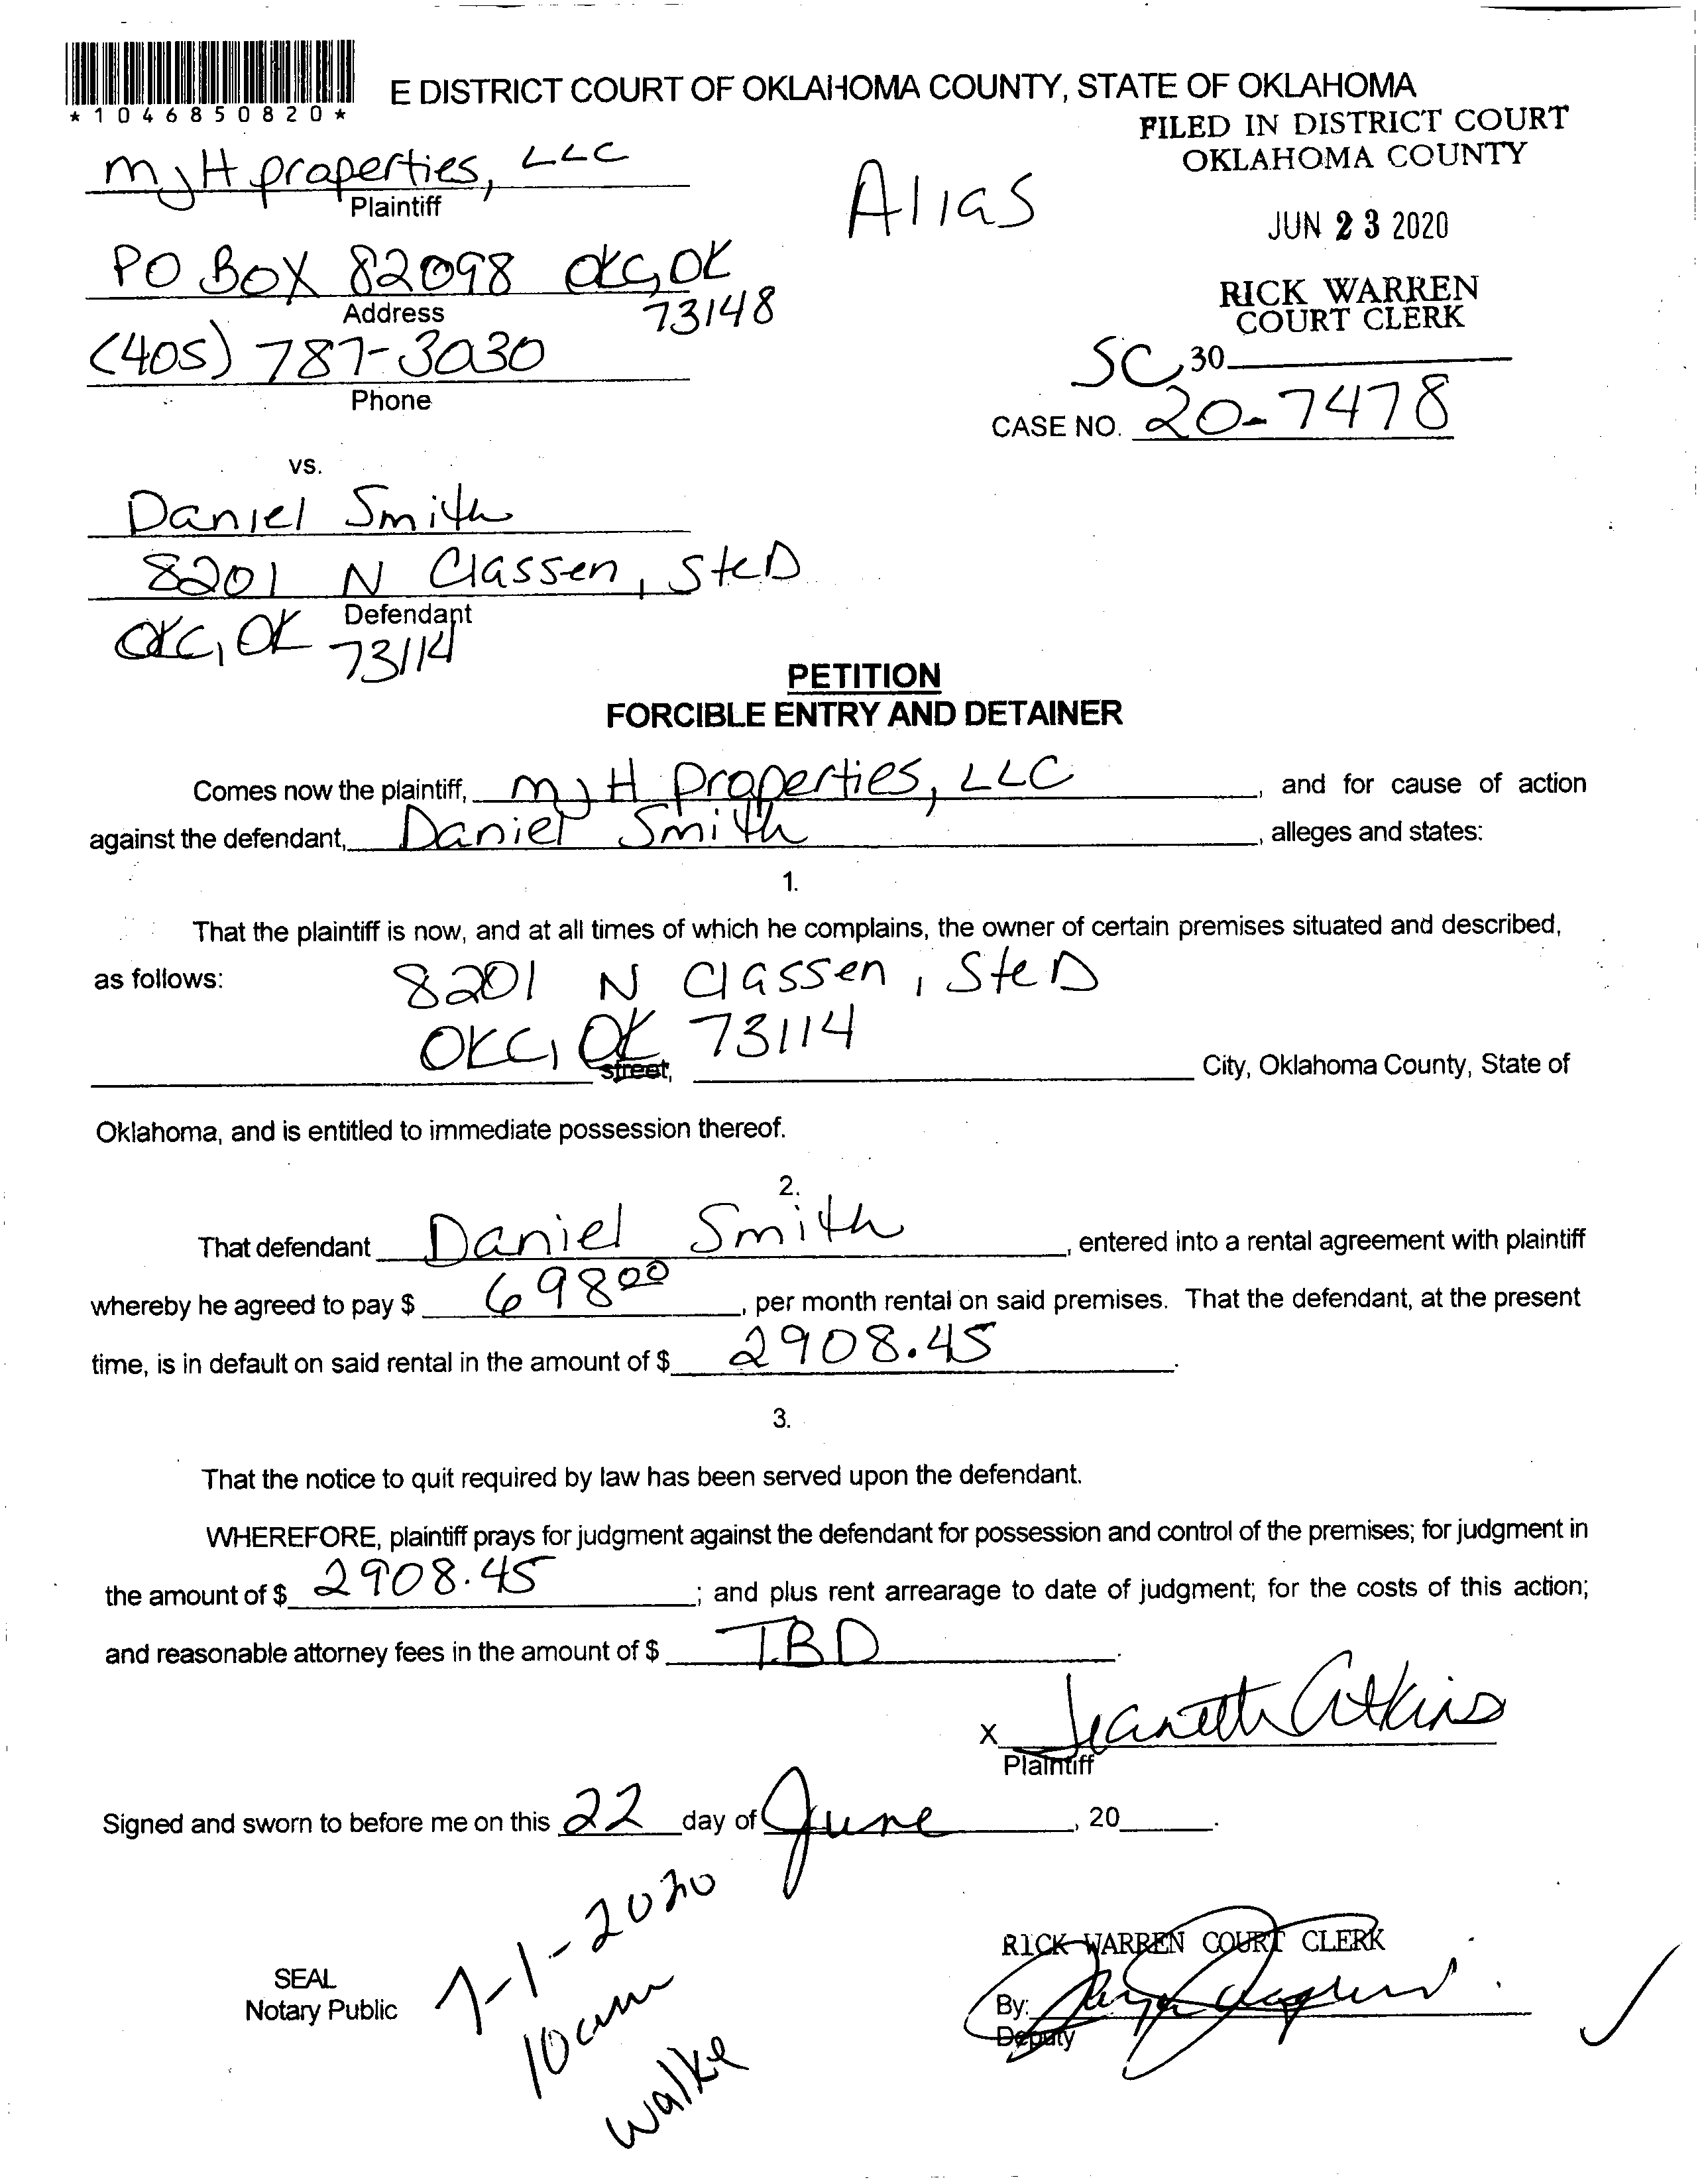 *1046850820*
E DISTRICT COURT OF OKLAHOMA COUNTY, STATE OF OKLAHOMA
FILED IN DISTRICT COURT
OKLAHOMA COUNTY
MJH properties, LLC
Plaintiff
Alias
JUN 23 2020
PO Box 82098 OKC, OK
73148
Address
RICK WARREN
COURT CLERK
(405) 787-3030
Phone
SC 30
CASE NO. 20-7478
vs.
Daniel Smith
8201 N Classen, Ste D
Defendant
OKC, OK 73114
PETITION
FORCIBLE ENTRY AND DETAINER
Comes now the plaintiff, MJH Properties, LLC, and for cause of action
against the defendant, Daniel Smith, alleges and states:
1.
That the plaintiff is now, and at all times of which he complains, the owner of certain premises situated and described,
as follows: 8201 N Classen, Ste D
OKC, OK 73114
street, City, Oklahoma County, State of
Oklahoma, and is entitled to immediate possession thereof.
2.
That defendant Daniel Smith, entered into a rental agreement with plaintiff
whereby he agreed to pay $ 698 00, per month rental on said premises. That the defendant, at the present
time, is in default on said rental in the amount of $ 2908.45.
3.
That the notice to quit required by law has been served upon the defendant.
WHEREFORE, plaintiff prays for judgment against the defendant for possession and control of the premises; for judgment in
the amount of $ 2908.45; and plus rent arrearage to date of judgment; for the costs of this action;
and reasonable attorney fees in the amount of $ TBD.
x Jeaneth Atkins
Plaintiff
Signed and sworn to before me on this 22 day of June, 20 .
7-1-2020
10am
RICK WARREN COURT CLERK
SEAL
Notary Public
By:
Deputy